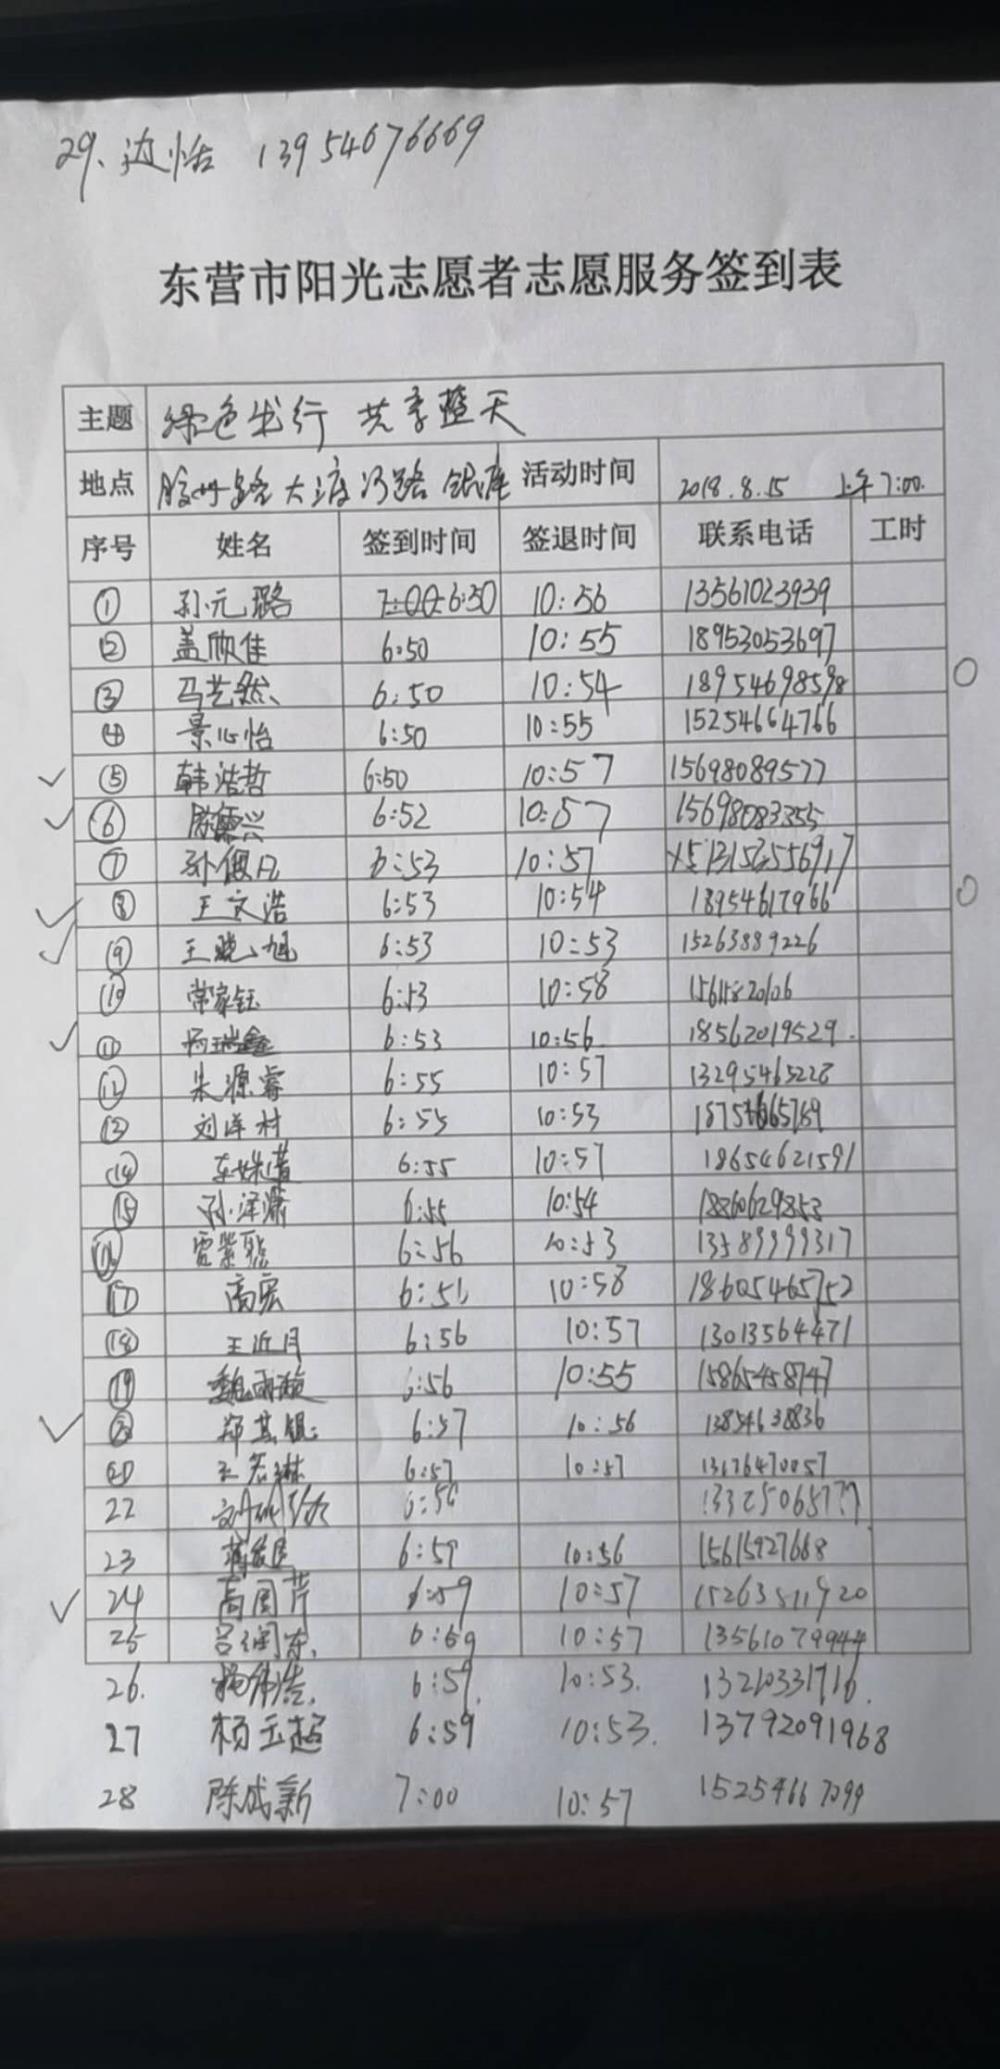 29. 边恬 13954676669
东营市阳光志愿者志愿服务签到表
主题 绿色出行 共享蓝天
地点 胶州路大渡河路 银座 活动时间 2018.8.15 上午7:00.
序号 姓名 签到时间 签退时间 联系电话 工时
① 孙元璐 7:00 6:50 10:56 13561023939
② 盖欣佳 6:50 10:55 18953053697
③ 马艺然 6:50 10:54 18954698598
④ 景心怡 6:50 10:55 15254664766
⑤ 韩浩哲 6:50 10:57 15698089577
⑥ 6:52 10:57 15698083355
⑦ 6:53 10:57
⑧ 王文浩 6:53 10:54 18954617966
⑨ 王晓旭 6:53 10:53 15263889226
⑩ 常家钰 6:53 10:58
⑪ 6:53 10:56 18562019529
⑫ 朱源睿 6:55 10:57 13295465228
⑬ 6:55 10:53
⑭ 6:55 10:57 18654621591
⑮ 孙泽 6:55 10:54 18860629853
⑯ 6:56 10:53 13589999317
⑰ 高宏 6:56 10:58 18605465752
⑱ 王近月 6:56 10:57 13013564471
⑲ 魏雨 6:56 10:55 15865458747
⑳ 郑其 6:57 10:56 13854638836
21 6:57 10:57 13176470057
22 6:56
23 6:59 10:56 15615927668
24 高国芹 6:59 10:57 15263511920
25 吕润东 6:59 10:57 13561079944
26. 6:59. 10:53. 13210331716.
27 杨玉超 6:59 10:53. 13792091968
28 陈成新 7:00 10:57 15254667099